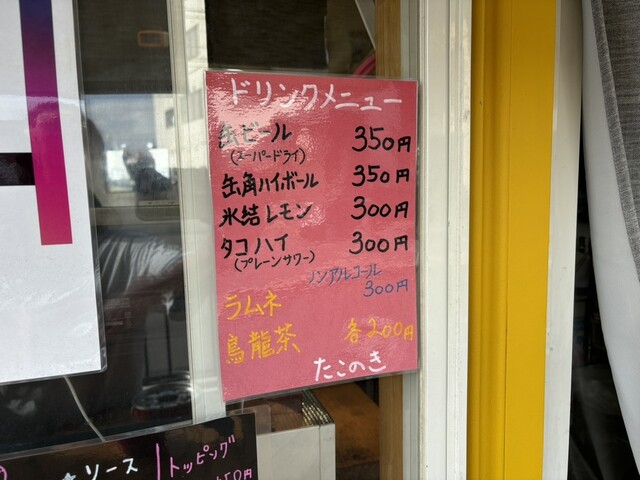 ドリンクメニュー
缶ビール 350円
(スーパードライ)
缶角ハイボール 350円
氷結レモン 300円
タコハイ 300円
(プレーンサワー)
ノンアルコール
300円
ラムネ
烏龍茶 各200円
たこのき
ソース トッピング
50円